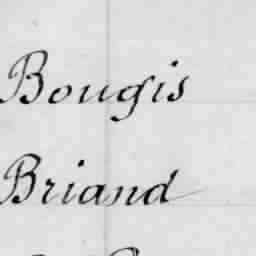 Bougis
Briand